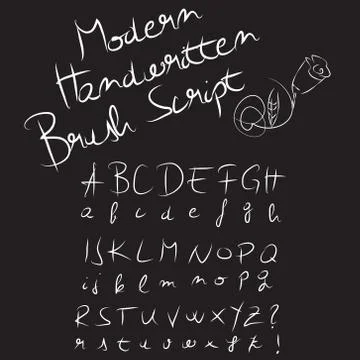 Modern
Handwritten
Brush Script
A B C D E F G H
a b c d e f g h
I J K L M N O P Q
i j k l m n o p q
R S T U V W X Y Z ?
r s t u v w x y z !